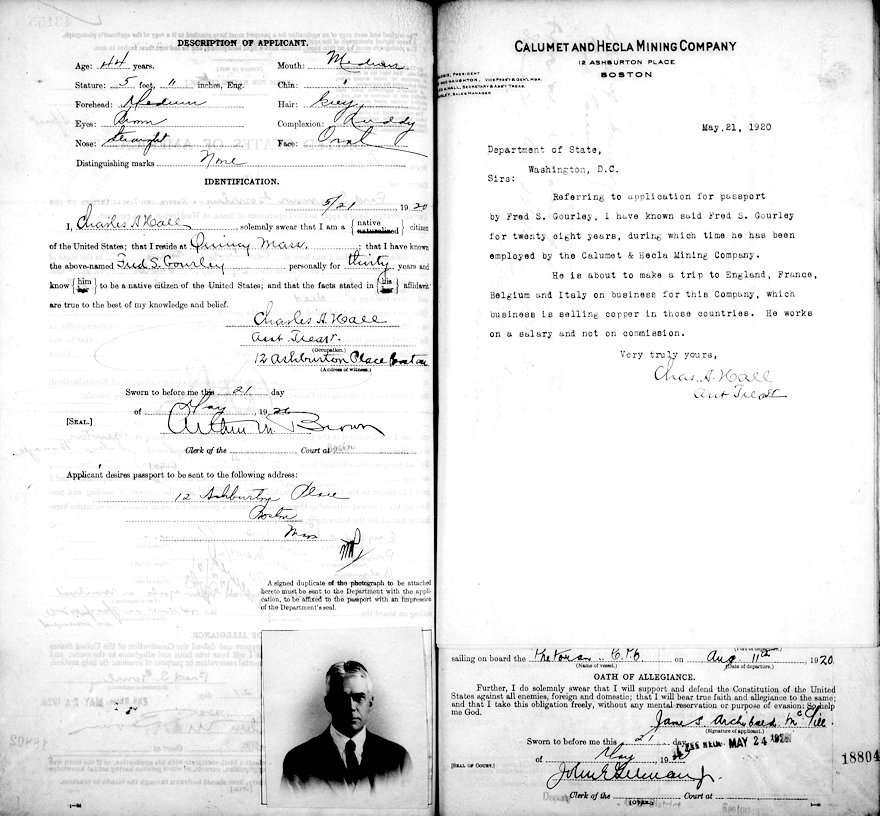 DESCRIPTION OF APPLICANT.
Age: 44 years.
Mouth: Medium
Stature: 5 feet, 11 inches, Eng.
Chin: "
Forehead: Medium
Hair: Grey
Eyes: Brown
Complexion: Ruddy
Nose: Straight
Face: Oval
Distinguishing marks None
IDENTIFICATION.
5/21 1920
I, Charles A Hall, solemnly swear that I am a {native naturalized} citizen
of the United States; that I reside at Quincy Mass.; that I have known
the above-named Fred S. Gourley personally for thirty years and
know {him her} to be a native citizen of the United States; and that the facts stated in {his her} affidavit
are true to the best of my knowledge and belief.
Charles A Hall
Asst Treasr.
(Occupation.)
12 Ashburton Place Boston
(Address of witness.)
Sworn to before me this 21 day
of May, 1920
[SEAL.]
Arthur M Brown
Clerk of the Court at
Applicant desires passport to be sent to the following address:
12 Ashburton Place
Boston
Mass
A signed duplicate of the photograph to be attached
hereto must be sent to the Department with the appli-
cation, to be affixed to the passport with an impression
of the Department's seal.
CALUMET AND HECLA MINING COMPANY
12 ASHBURTON PLACE
BOSTON
PRESIDENT
NAUGHTON, VICE PREST & GENL MGR.
HALL, SECRETARY & ASST TREAS.
SALES MANAGER
May, 21, 1920
Department of State,
Washington, D.C.
Sirs:
Referring to application for passport
by Fred S. Gourley, I have known said Fred S. Gourley
for twenty eight years, during which time he has been
employed by the Calumet & Hecla Mining Company.
He is about to make a trip to England, France,
Belgium and Italy on business for this Company, which
business is selling copper in those countries. He works
on a salary and not on commission.
Very truly yours,
Chas. A. Hall
Asst Treasr
sailing on board the on Aug 11th, 1920.
(Name of vessel.) (Date of departure.)
OATH OF ALLEGIANCE.
Further, I do solemnly swear that I will support and defend the Constitution of the United
States against all enemies, foreign and domestic; that I will bear true faith and allegiance to the same;
and that I take this obligation freely, without any mental reservation or purpose of evasion: So help
me God.
James Archibald McGill.
(Signature of applicant.)
Sworn to before me this 21 day
MAY 24 1920
of May, 1920
18804
[SEAL OF COURT.]
John E Gilman Jr.
Clerk of the Court at
(OVER.)
Boston